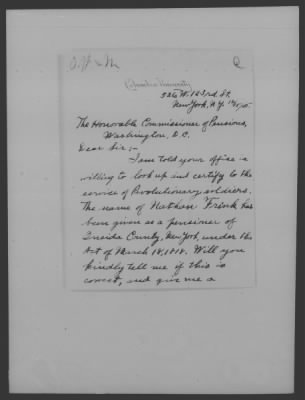 O. W. & N.
Columbia University
526 W. 123rd. St.
New York, N.Y.
The Honorable Commissioner of Pensions,
Washington, D.C.
Dear Sir:-
I am told your office is
willing to look up and certify to the
service of Revolutionary soldiers.
The name of Nathan Frink has
been given as a pensioner of
Oneida County, New York, under the
Act of March 18, 1818. Will you
kindly tell me if this is
correct, and give me a